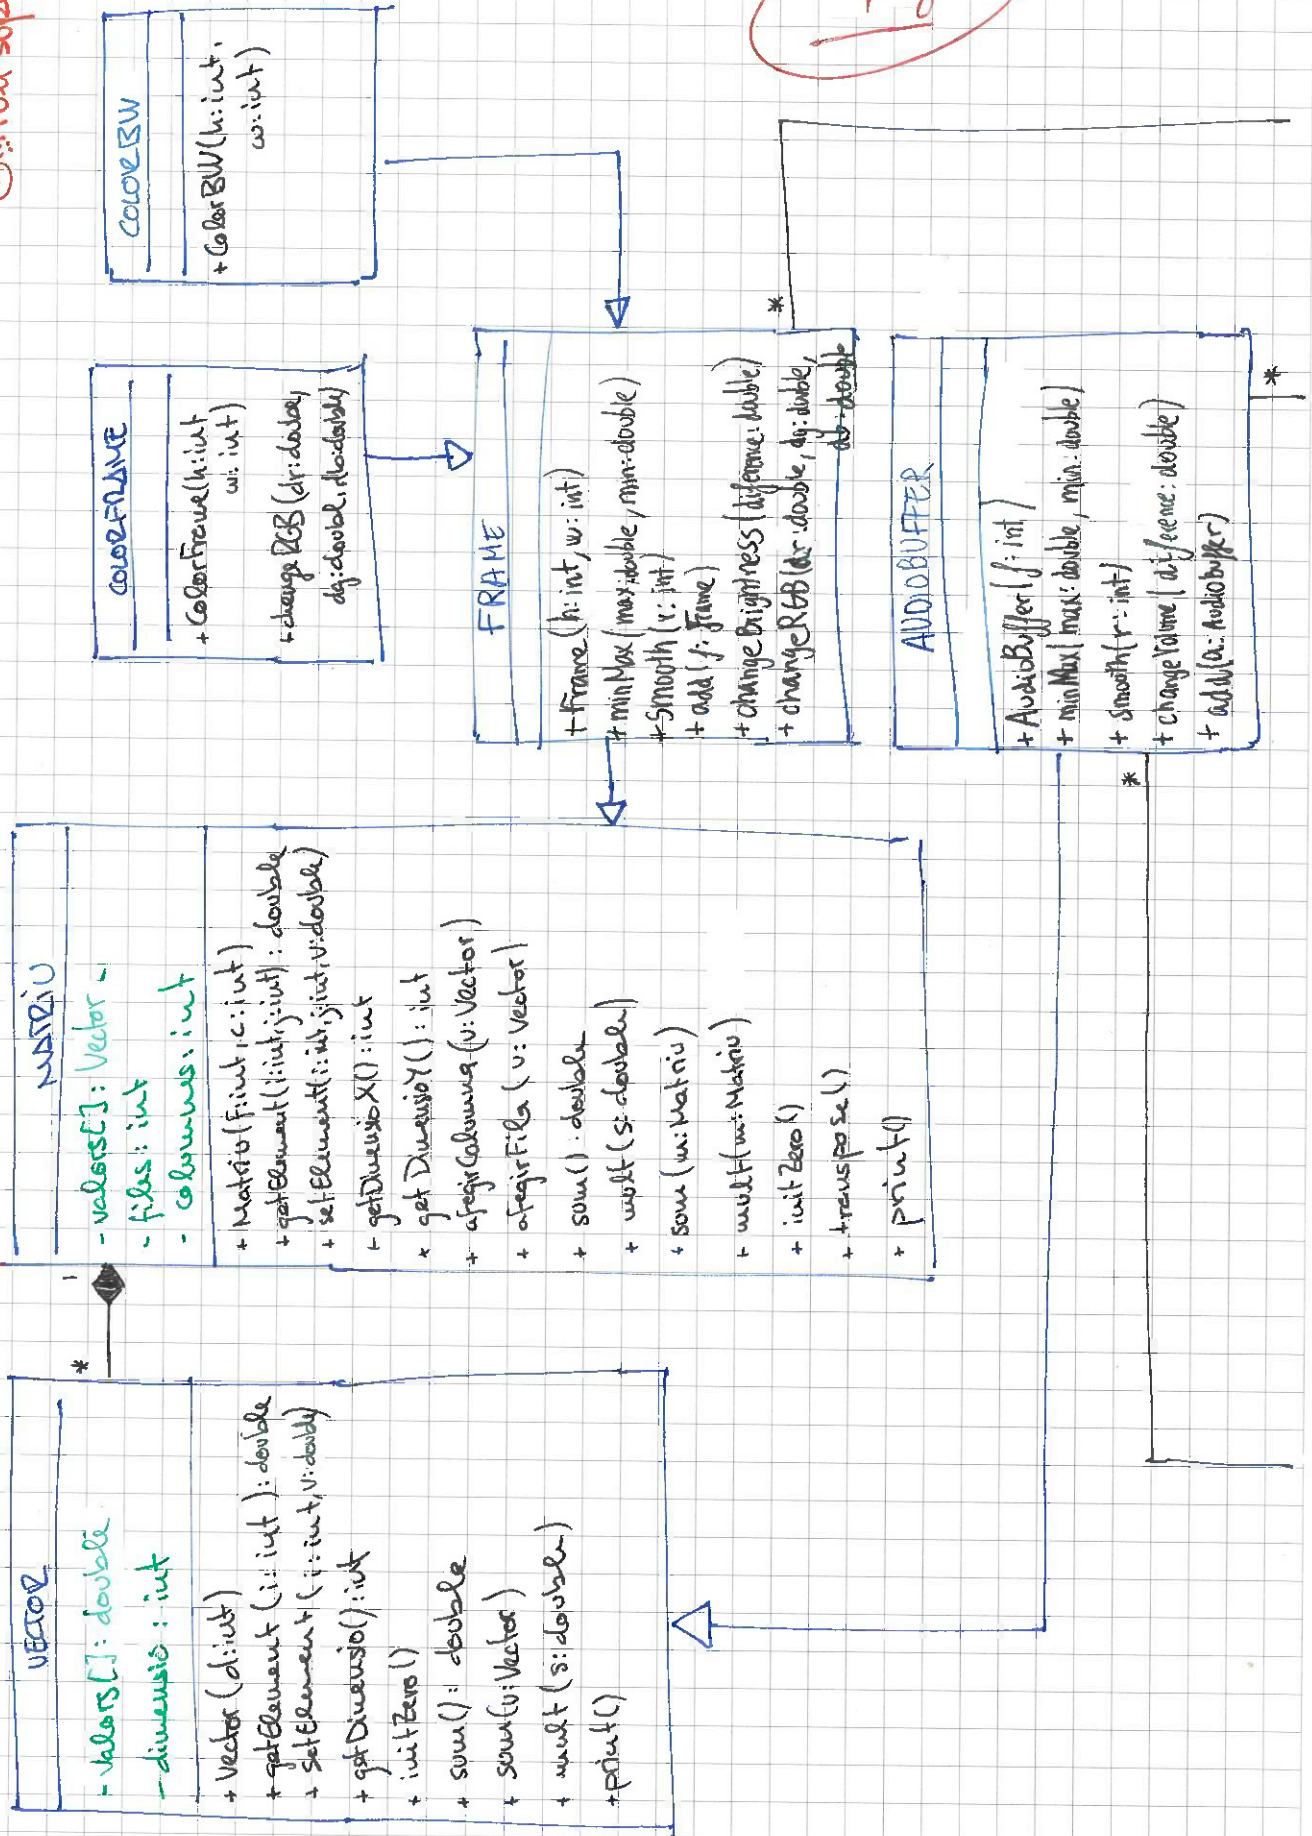 VECTOR
- valors[]: double
- dimensio: int
+ Vector(d:int)
+ getElement(i:int): double
+ setElement(i:int, v:double)
+ getDimensio(): int
+ initZero()
+ sum(): double
+ sum(v:Vector)
+ mult(s:double)
+ print()
*
1
MATRIU
- valors[]: Vector -
- files: int
- columnes: int
+ Matriu(f:int, c:int)
+ getElement(i:int, j:int): double
+ setElement(i:int, j:int, v:double)
+ getDimensioX(): int
+ getDimensioY(): int
+ afegirColumna(v: Vector)
+ afegirFila(v: Vector)
+ sum(): double
+ mult(s: double)
+ sum(m:Matriu)
+ mult(m:Matriu)
+ initZero()
+ transpose()
+ print()
COLORFRAME
+ ColorFrame(h:int
w:int)
+ changeRGB(dr:double,
dg:double, db:double)
COLORBW
+ ColorBW(h:int,
w:int)
FRAME
+ Frame(h:int, w:int)
+ minMax(max:double, min:double)
+ smooth(r:int)
+ add(f:Frame)
+ changeBrightness(diference:double)
+ changeRGB(dr:double, dg:double,
db:double
*
AUDIOBUFFER
+ AudioBuffer(f:int)
+ minMax(max:double, min:double)
+ smooth(r:int)
+ changeVolume(diference:double)
+ add(a:AudioBuffer)
*
*